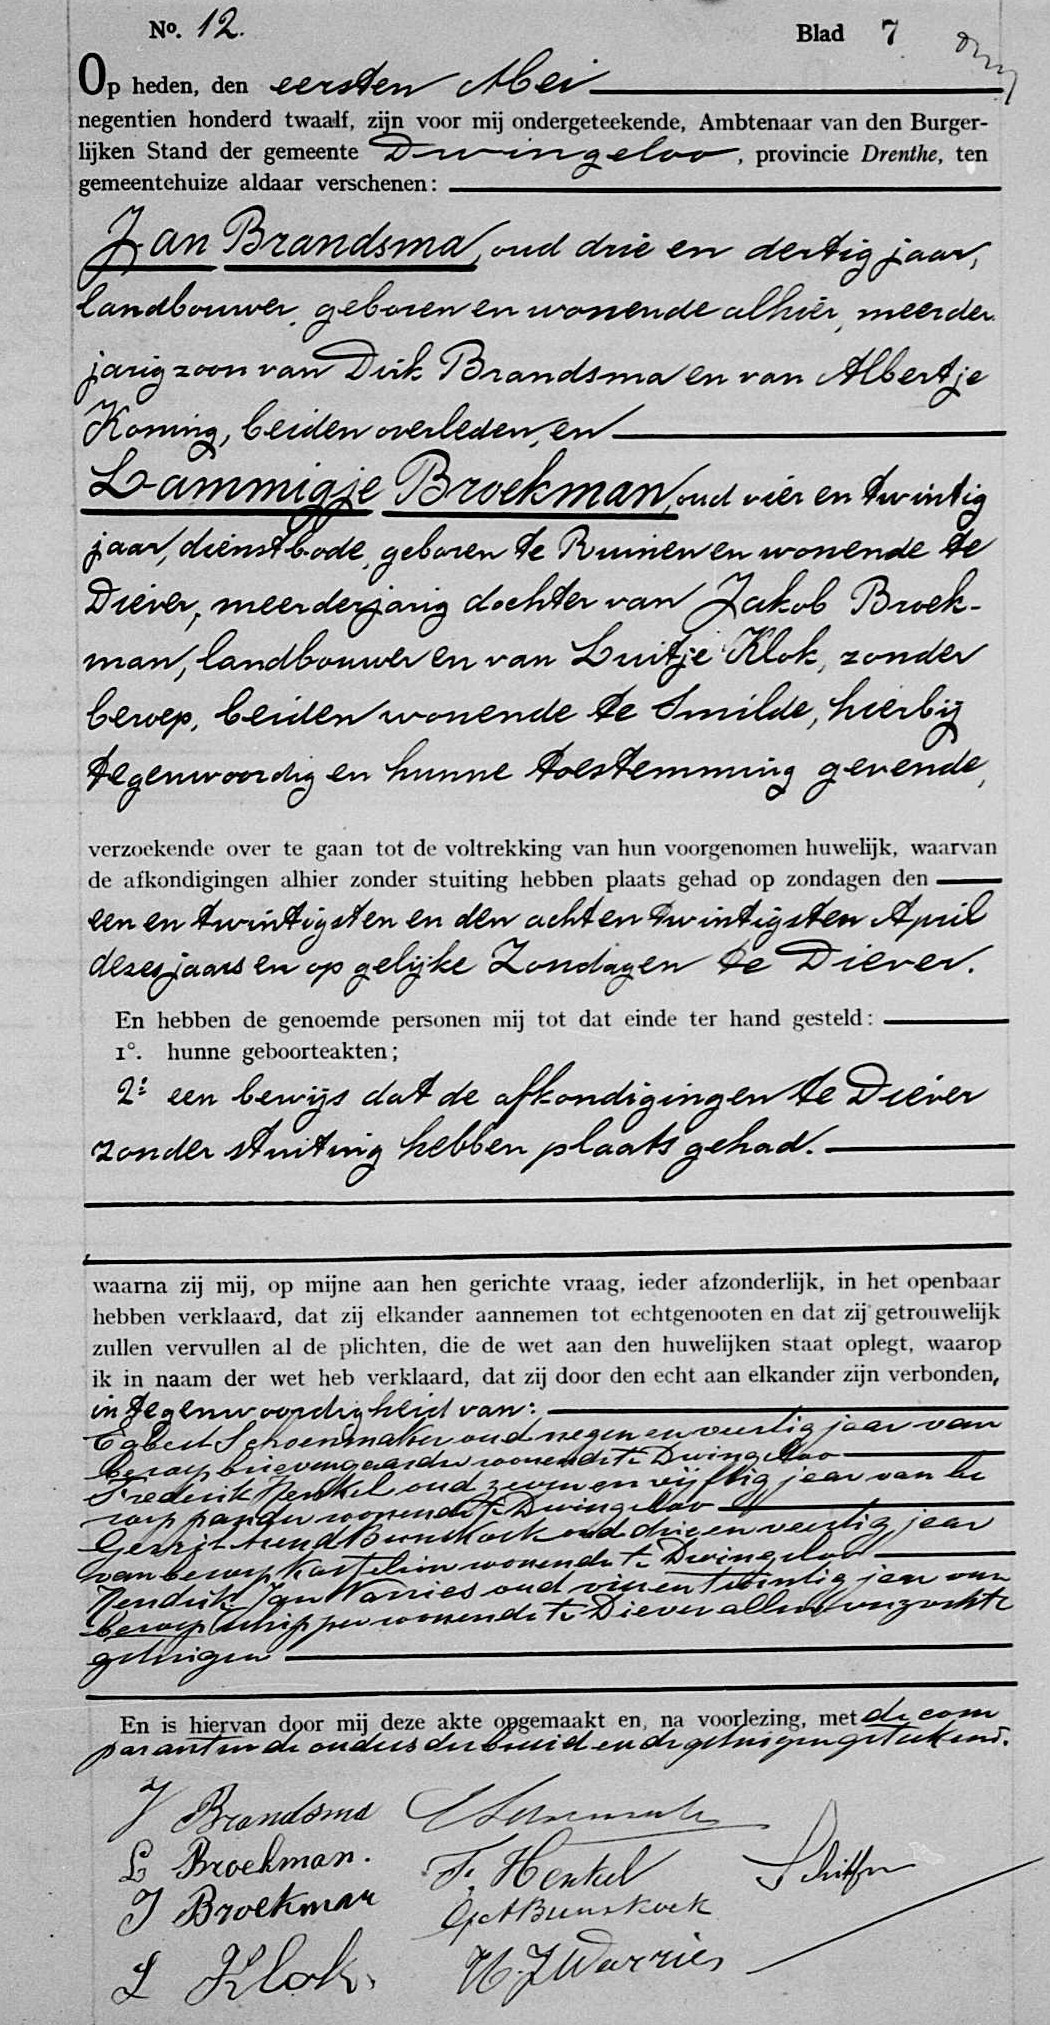 No. 12.
Blad 7
Op heden, den eersten Mei
negentien honderd twaalf, zijn voor mij ondergeteekende, Ambtenaar van den Burger-
lijken Stand der gemeente Dwingeloo, provincie Drenthe, ten
gemeentehuize aldaar verschenen:
Jan Brandsma, oud drie en dertig jaar,
landbouwer, geboren en wonende alhier, meerder
jarig zoon van Dirk Brandsma en van Albertje
Koning, beiden overleden, en
Lammigje Broekman, oud vier en twintig
jaar, dienstbode, geboren te Ruinen en wonende te
Diever, meerderjarig dochter van Jakob Broek-
man, landbouwer en van Luitje Klok, zonder
beroep, beiden wonende te Smilde, hierbij
tegenwoordig en hunne toestemming gevende,
verzoekende over te gaan tot de voltrekking van hun voorgenomen huwelijk, waarvan
de afkondigingen alhier zonder stuiting hebben plaats gehad op zondagen den
een en twintigsten en den acht en twintigsten April
dezes jaars en op gelijke Zondagen te Diever.
En hebben de genoemde personen mij tot dat einde ter hand gesteld:
1°. hunne geboorteakten;
2: een bewijs dat de afkondigingen te Diever
zonder stuiting hebben plaats gehad.
waarna zij mij, op mijne aan hen gerichte vraag, ieder afzonderlijk, in het openbaar
hebben verklaard, dat zij elkander aannemen tot echtgenooten en dat zij getrouwelijk
zullen vervullen al de plichten, die de wet aan den huwelijken staat oplegt, waarop
ik in naam der wet heb verklaard, dat zij door den echt aan elkander zijn verbonden,
in tegenwoordigheid van:
Egbert Schoenmaker oud negen en veertig jaar van
beroep brievengaarder wonende te Dwingeloo
Frederik Henkel oud zeven en vijftig jaar van be
roep wonende te Dwingeloo
Gerrit Arend Bunskoek oud drie en veertig jaar
van beroep Kastelein wonende te Dwingeloo
Hendrik Jan Warries oud vier en twintig jaar van
beroep schipper wonende te Diever allen verzochte
getuigen
En is hiervan door mij deze akte opgemaakt en, na voorlezing, met de com
paranten de ouders der bruid en de getuigen geteekend.
J Brandsma
L Broekman.
F. Henkel
J Broekman
G A Bunskoek
L Klok.
H. J Warries